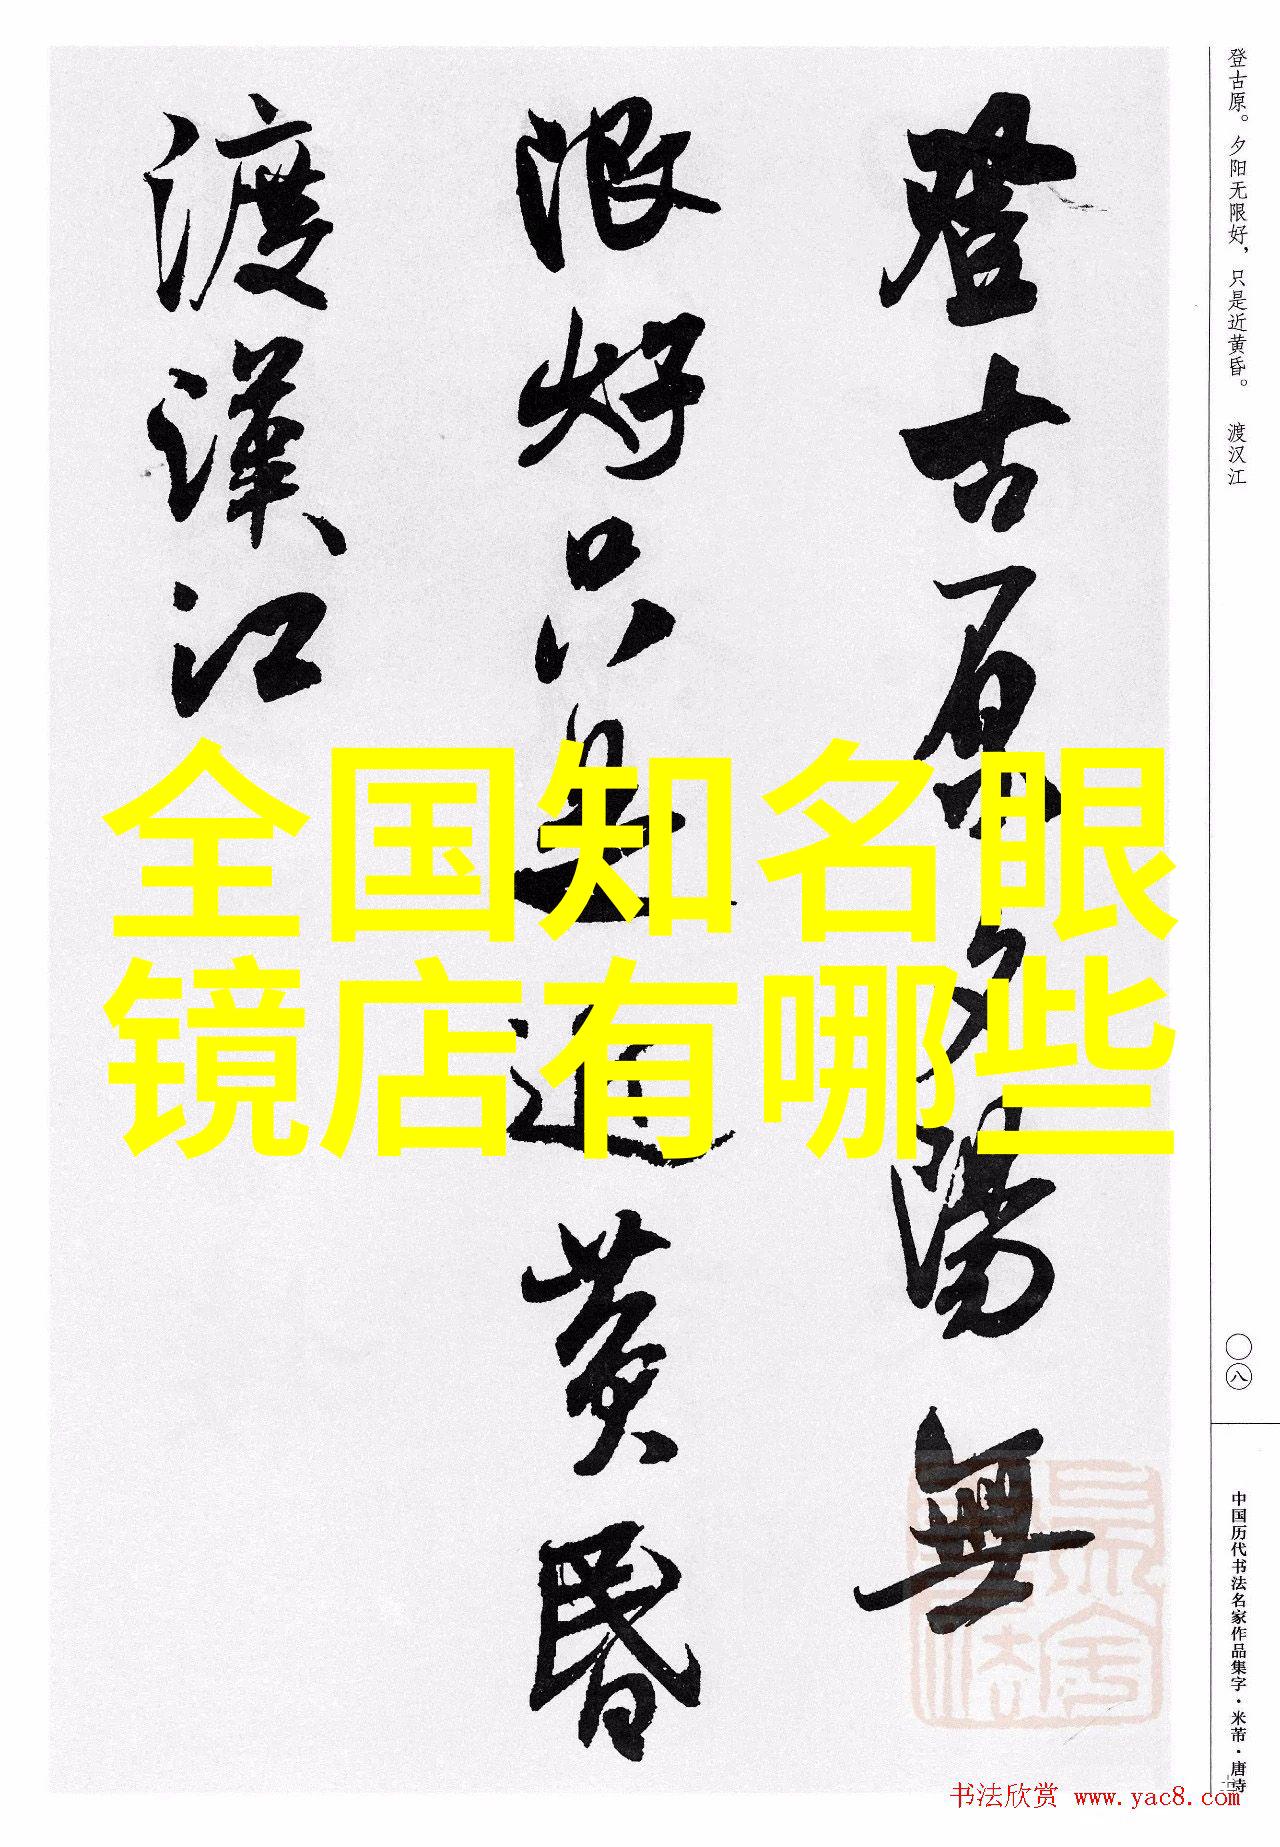 登古原夕陽無
限好只是近黄昏
渡漢江
登古原。夕阳无限好，只是近黄昏。 渡汉江
〇八
中国历代书法名家作品集字·米芾·唐诗
全国知名眼
镜店有哪些
书法欣赏 www.yac8.com